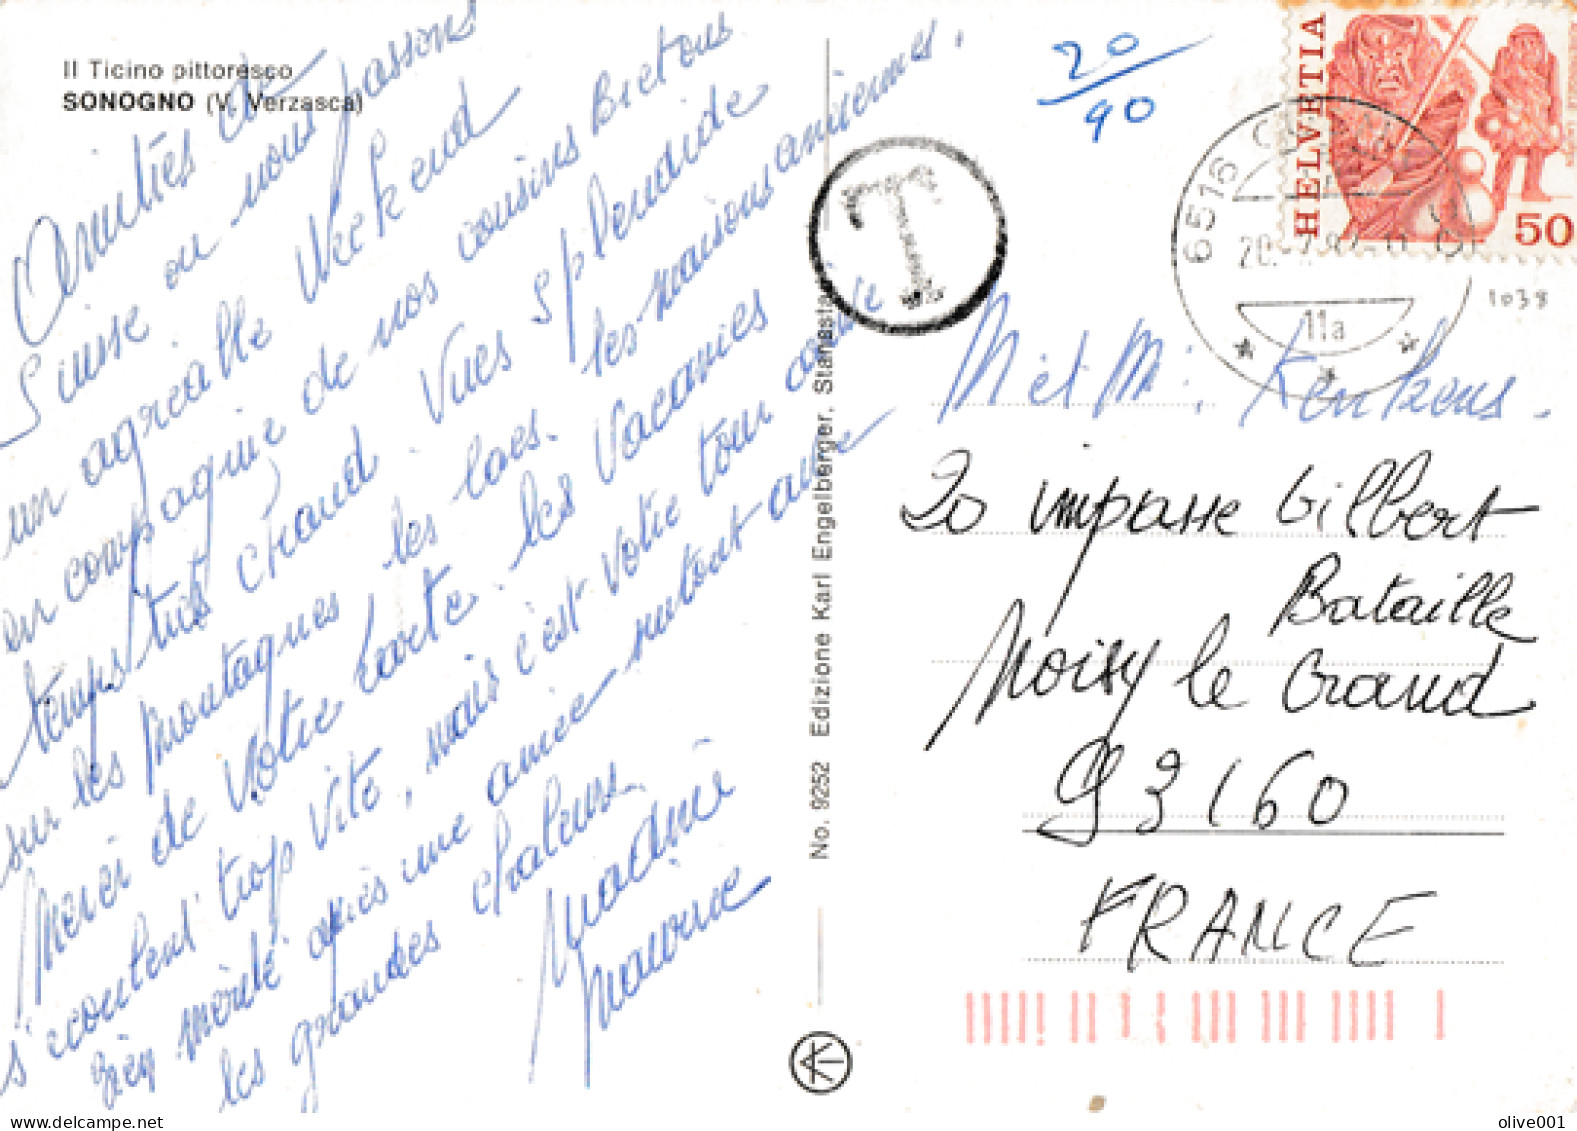 Il Ticino pittoresco
SONOGNO (V. Verzasca)
Amitiés de
Suisse ou nous passons
un agréable Week end
en compagnie de nos cousins Bretons
temps très chaud. Vues splendide
sur les montagnes les lacs. les maisons anciennes.
Merci de Votre carte. les Vacances
s'écoulent trop vite, mais c'est votre tour
bien mérité après une année surtout avec
les grandes chaleurs.
Maurice
No. 9252 Edizione Karl Engelberger, Stansstad
20
90
T
HELVETIA
50
6516
20. 7.82-11
11a
1038
M et Mme Kenkens.
20 impasse Gilbert
Bataille
Noisy le Grand
93160
FRANCE
olive001